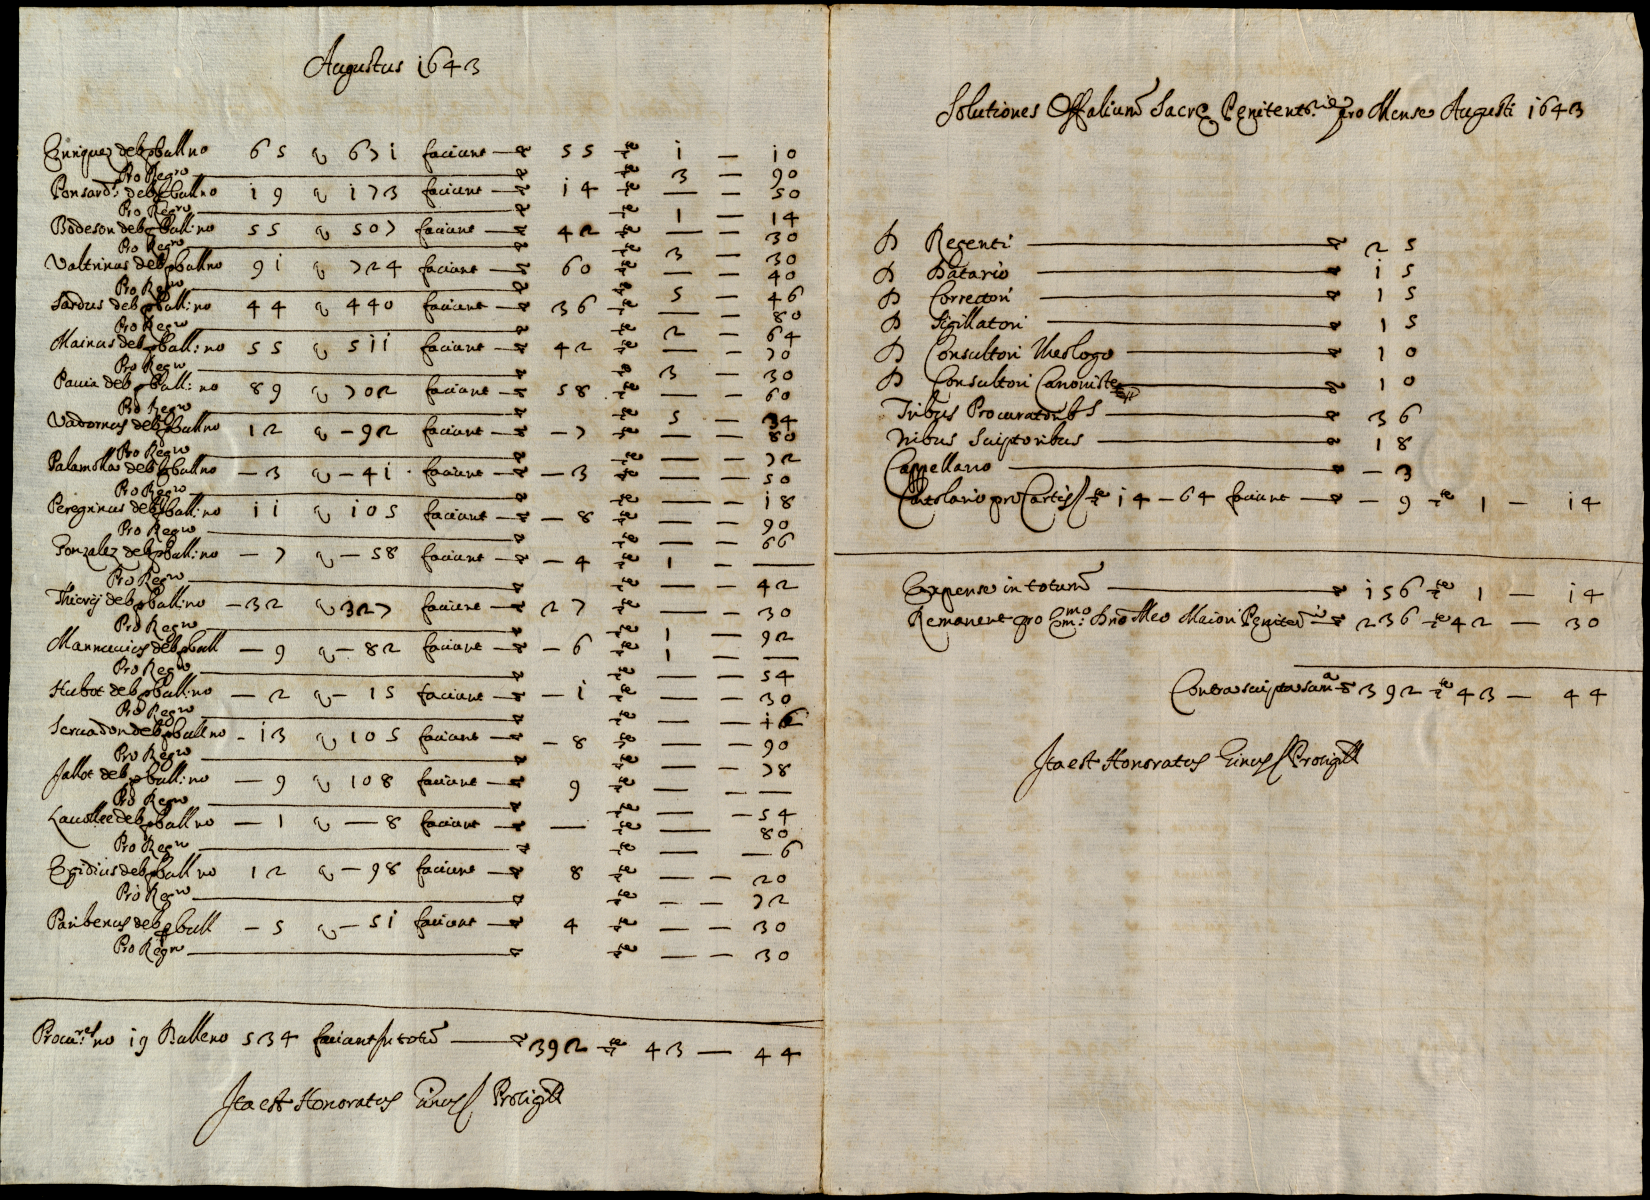 Augustus 1643
Enriquez deb. p bull no 65 q 671 faciunt — 55 — 1 — 10
Pro Regro — 3 — 90
Ponsard. deb. p bull no 19 q 173 faciunt — 14 — 50
Pro Regro — 1 — 14
Bodeson deb. p bull. no 55 q 507 faciunt — 42 — 30
Pro Regro — 3 — 30
Valtrinus deb. p bull no 91 q 724 faciunt — 60 — 40
Pro Regro — 5 — 46
Sardus deb. p bull. no 44 q 440 faciunt — 36 — 80
Pro Regro — 2 — 64
Mainus deb. p bull. no 55 q 511 faciunt — 42 — 70
Pro Regro — 3 — 30
Pauia deb. p bull. no 89 q 702 faciunt — 58 — 60
Pro Regro — 5 — 34
Vadornus deb. p bull no 12 q — 92 faciunt — 7 — 80
Pro Regro — 72
Palamolla deb. p bull no — 3 q — 41 faciunt — 3 — 50
Pro Regro — 18
Peregrinus deb. p bull. no 11 q 105 faciunt — 8 — 90
Pro Regro — 66
Gonzalez deb. p bull. no — 7 q — 58 faciunt — 4 — 1 —
Pro Regro — 42
Thierrij deb. p bull. no — 32 q 327 faciunt — 27 — 30
Pro Regro — 1 — 92
Mannucius deb. p bull — 9 q — 82 faciunt — 6 — 1 —
Pro Regro — 54
Hubot deb. p bull. no — 2 q — 15 faciunt — 1 — 30
Pro Regro — 12
Seruadon deb. p bull no — 13 q 105 faciunt — 8 — 90
Pro Regro — 78
Jallot deb. p bull. no — 9 q 108 faciunt — 9 —
Pro Regro — 54
Lauollee deb. p bull no — 1 q — 8 faciunt — 80
Pro Regro — 6
Egidius deb. p bull no 12 q — 98 faciunt — 8 — 20
Pro Regro — 72
Paribenus deb. p bull — 5 q — 51 faciunt — 4 — 30
Pro Regro — 30
Procu.res no 19 Bulle no 534 faciunt in totū — 392 — 43 — 44
Ita est Honoratus
Solutiones Offalium Sacrę Penitent.rię pro Mense Augusti 1643
D Regenti — 25
D Datario — 15
D Correctori — 15
D Sigillatori — 15
D Consultori Theologo — 10
D Consultori Canoniste — 10
Tribus Procuratoribus — 36
Tribus Scriptoribus — 18
Cappellano — 3
pro Cartis 14 — 64 faciunt — 9 — 1 — 14
Expense in totum — 156 — 1 — 14
Remanent pro Em.mo Dno Meo Maiori Peniten.rio — 236 — 42 — 30
Contrascripta sum.a — 392 — 43 — 44
Ita est Honoratus